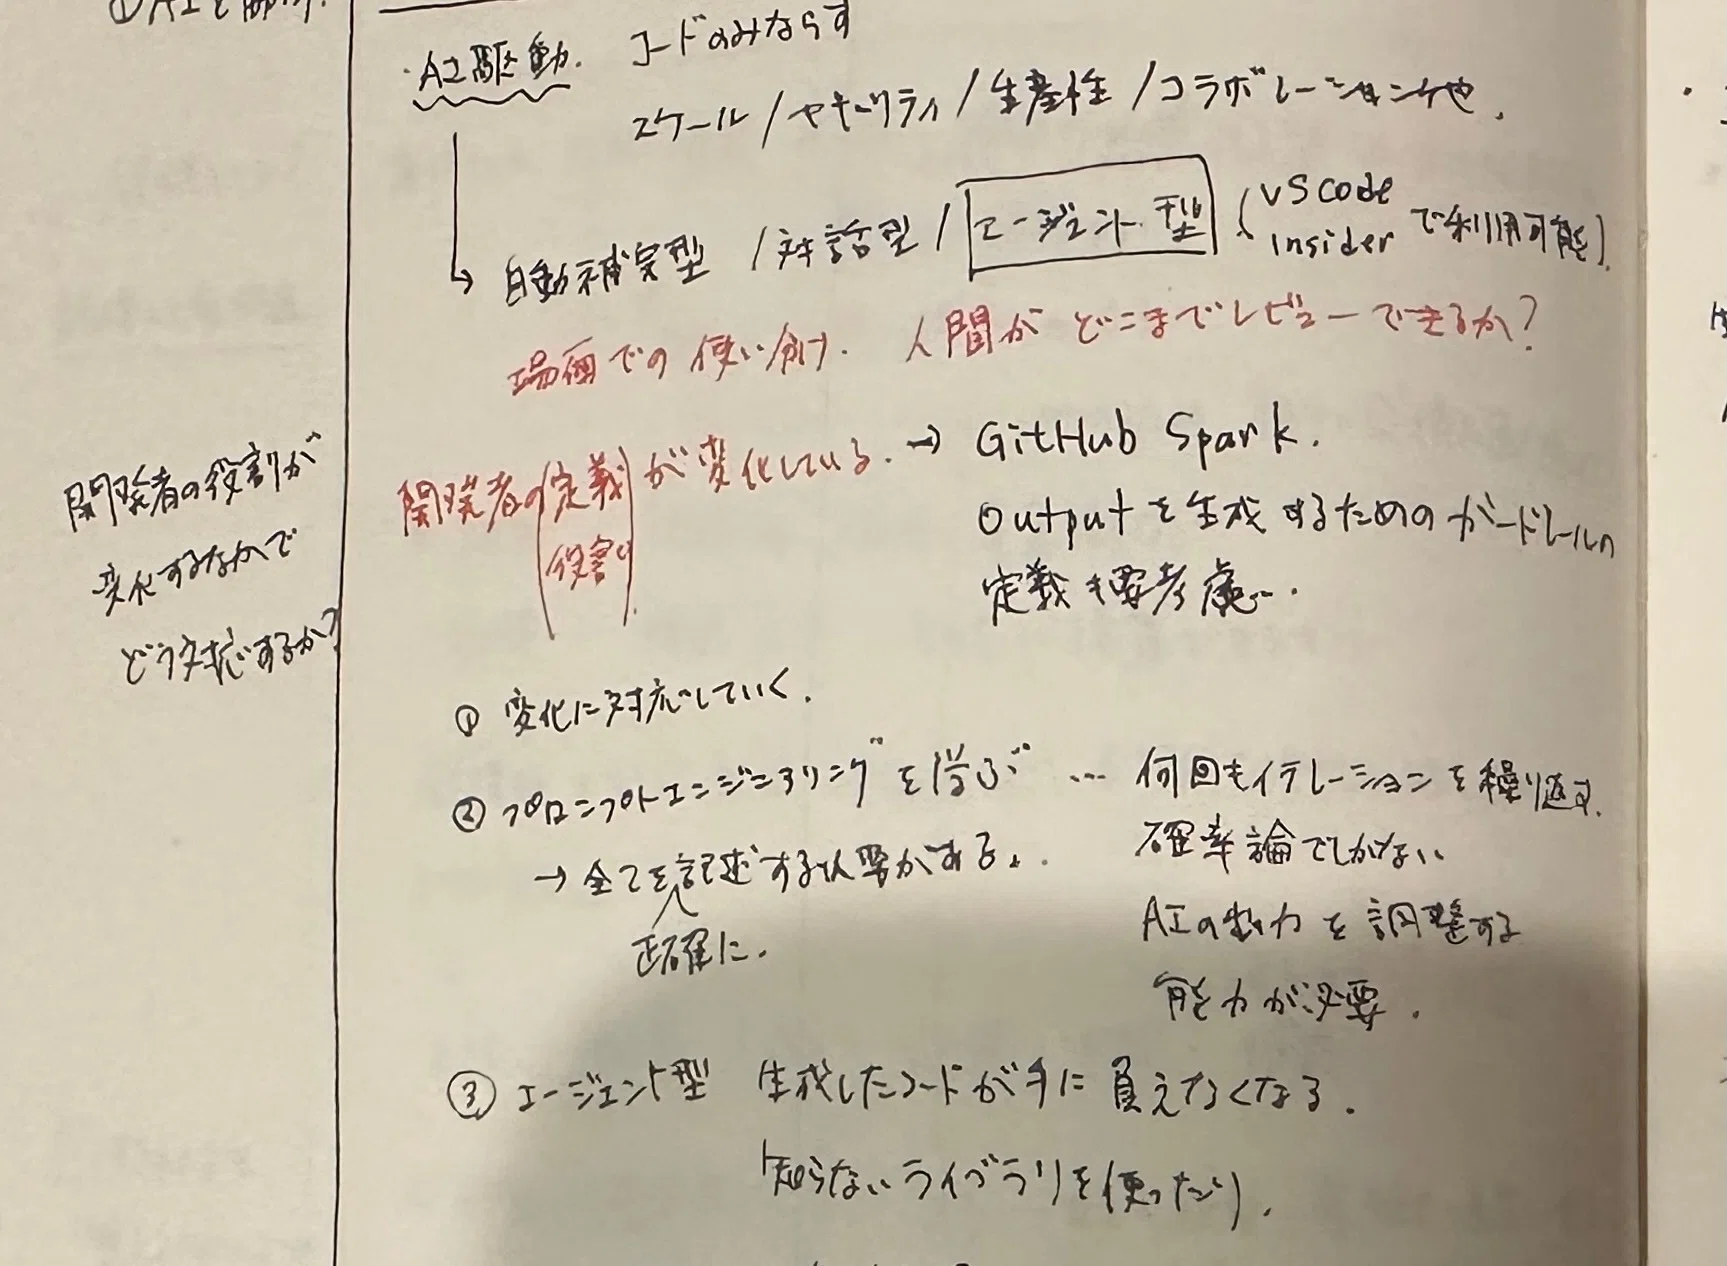 ・AI駆動. コードのみならず
スケール/セキュリティ/生産性/コラボレーション他.
自動補完型 /対話型/エージェント型 (VS code
insider で利用可能).
場面での使い分け. 人間がどこまでレビューできるか?
開発者の(定義)が変化している. → GitHub Spark.
役割
Outputを生成するためのガードレールの
定義も要考慮.
開発者の役割が
変化するなかで
どう対応するか?
① 変化に対応していく.
② プロンプトエンジニアリングを学ぶ … 何回もイテレーションを繰り返す.
→ 全てを記述する必要がある.
正確に.
確率論でしかない
AIの出力を調整する
能力が必要.
③ エージェント型 生成したコードが手に負えなくなる.
知らないライブラリを使ったり.